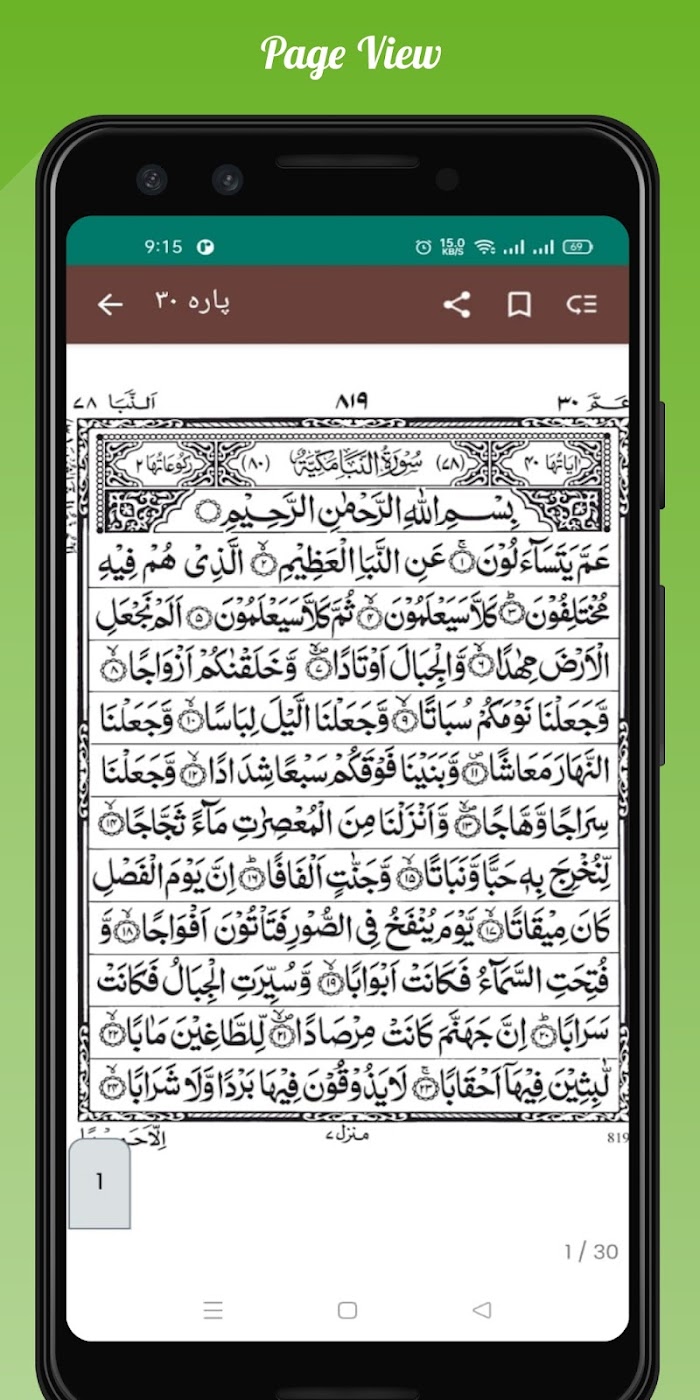 Page View
9:15
15.0 KB/S
69
پاره ۳۰
عَمَّ ۳۰ ۸۱۹ اَلنَّبَا ۷۸
اٰیَاتُهَا ۴۰ (۷۸) سُوْرَةُ النَّبَاِ مَكِّیَّةٌ (۸۰) رُكُوْعَاتُهَا ۲
بِسْمِ اللّٰهِ الرَّحْمٰنِ الرَّحِیْمِ
عَمَّ یَتَسَآءَلُوْنَ ۱ عَنِ النَّبَاِ الْعَظِیْمِ ۲ الَّذِیْ هُمْ فِیْهِ
مُخْتَلِفُوْنَ ۳ كَلَّا سَیَعْلَمُوْنَ ۴ ثُمَّ كَلَّا سَیَعْلَمُوْنَ ۵ اَلَمْ نَجْعَلِ
الْاَرْضَ مِهٰدًا ۶ وَّالْجِبَالَ اَوْتَادًا ۷ وَّخَلَقْنٰكُمْ اَزْوَاجًا ۸
وَّجَعَلْنَا نَوْمَكُمْ سُبَاتًا ۹ وَّجَعَلْنَا الَّیْلَ لِبَاسًا ۱۰ وَّجَعَلْنَا
النَّهَارَ مَعَاشًا ۱۱ وَّبَنَیْنَا فَوْقَكُمْ سَبْعًا شِدَادًا ۱۲ وَّجَعَلْنَا
سِرَاجًا وَّهَّاجًا ۱۳ وَّاَنْزَلْنَا مِنَ الْمُعْصِرٰتِ مَآءً ثَجَّاجًا ۱۴
لِّنُخْرِجَ بِهٖ حَبًّا وَّنَبَاتًا ۱۵ وَّجَنّٰتٍ اَلْفَافًا ۱۶ اِنَّ یَوْمَ الْفَصْلِ
كَانَ مِیْقَاتًا ۱۷ یَّوْمَ یُنْفَخُ فِی الصُّوْرِ فَتَاْتُوْنَ اَفْوَاجًا ۱۸ وَّ
فُتِحَتِ السَّمَآءُ فَكَانَتْ اَبْوَابًا ۱۹ وَّسُیِّرَتِ الْجِبَالُ فَكَانَتْ
سَرَابًا ۲۰ اِنَّ جَهَنَّمَ كَانَتْ مِرْصَادًا ۲۱ لِّلطَّاغِیْنَ مَاٰبًا ۲۲
لّٰبِثِیْنَ فِیْهَاۤ اَحْقَابًا ۲۳ لَا یَذُوْقُوْنَ فِیْهَا بَرْدًا وَّلَا شَرَابًا ۲۴
819 منزل ۷
1
1 / 30